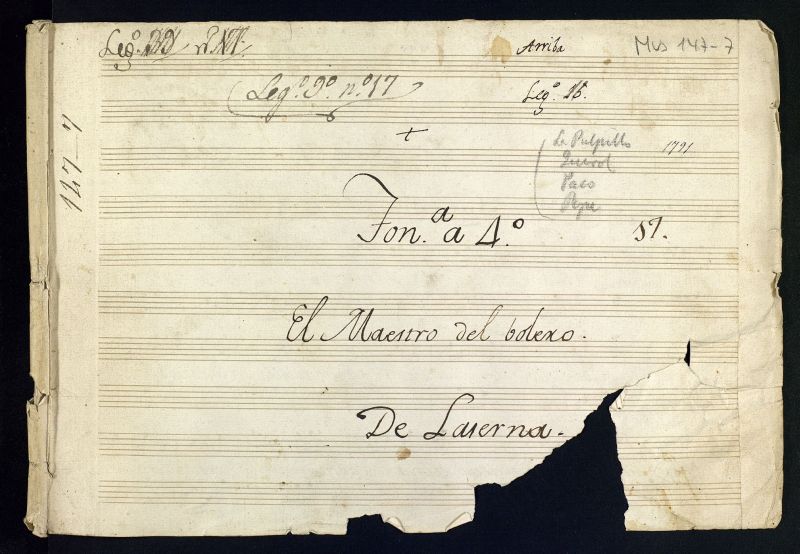 Arriba
Mus 147-7
Leg.º 9.º n.º 17
Leg.º 16.
147-7
+
La Pulpillo
Querol
Paco
Pepe
1791
Ton.ª a 4.º
El Maestro del bolero.
De Laserna.